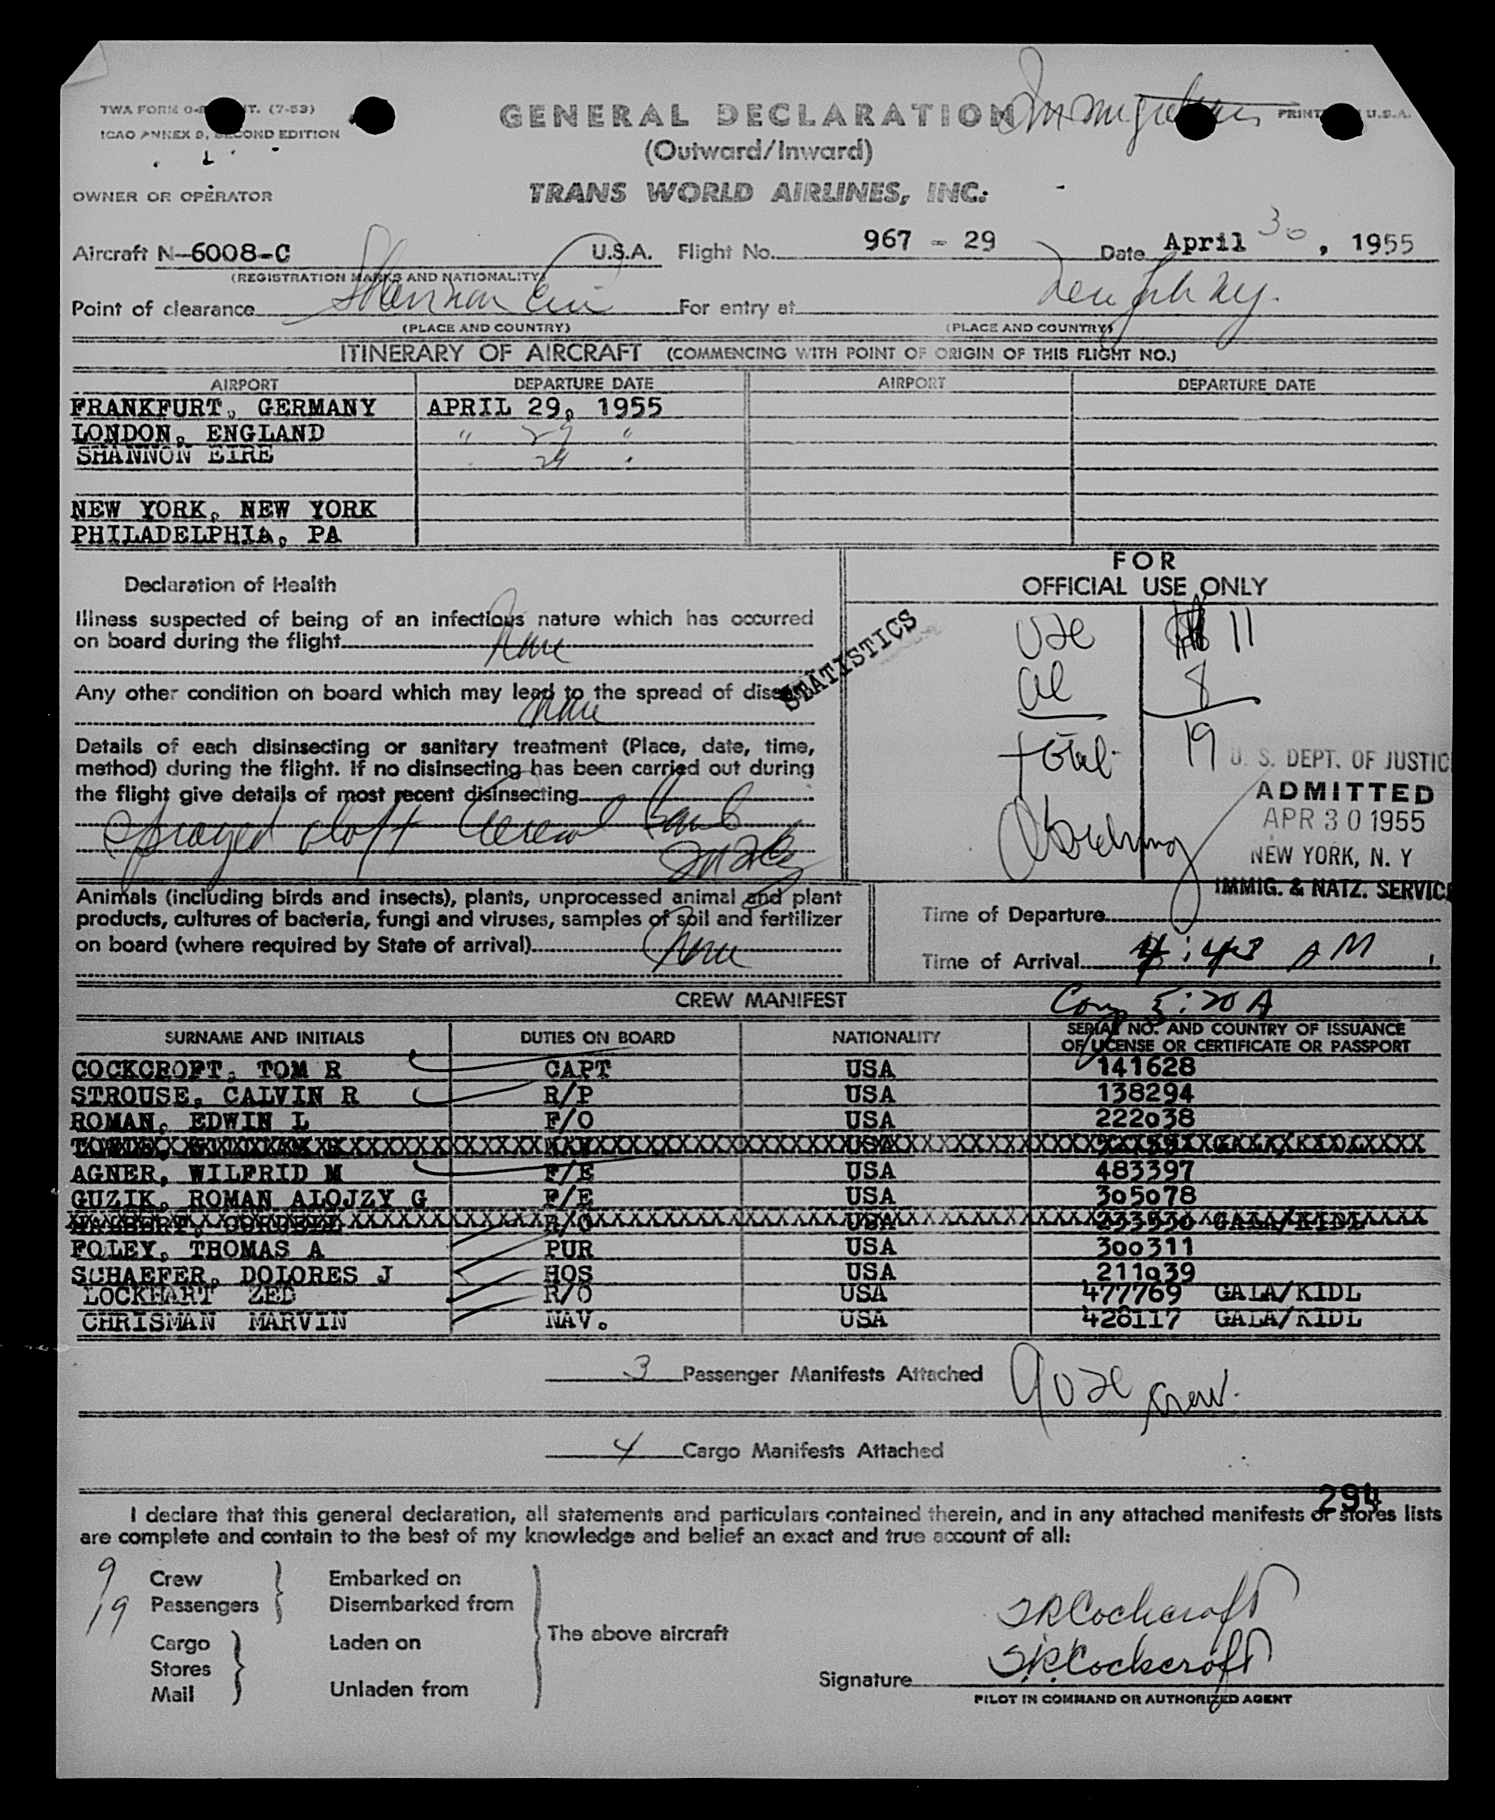 TWA FORM (7-53)
ICAO ANNEX 9, SECOND EDITION
GENERAL DECLARATION
Immigration
PRINT U.S.A.
(Outward/Inward)
OWNER OR OPERATOR
TRANS WORLD AIRLINES, INC.
Aircraft N-6008-C U.S.A. Flight No. 967 - 29 Date April 30, 1955
(REGISTRATION MARKS AND NATIONALITY)
Point of clearance Shannon Eire For entry at New York NY.
(PLACE AND COUNTRY) (PLACE AND COUNTRY)
ITINERARY OF AIRCRAFT (COMMENCING WITH POINT OF ORIGIN OF THIS FLIGHT NO.)
AIRPORT DEPARTURE DATE AIRPORT DEPARTURE DATE
FRANKFURT, GERMANY APRIL 29, 1955
LONDON, ENGLAND " 29 "
SHANNON EIRE 29 "
NEW YORK, NEW YORK
PHILADELPHIA, PA
FOR
OFFICIAL USE ONLY
Declaration of Health
Illness suspected of being of an infectious nature which has occurred
on board during the flight None
Any other condition on board which may lead to the spread of disease
None
STATISTICS
Details of each disinsecting or sanitary treatment (Place, date, time,
method) during the flight. If no disinsecting has been carried out during
the flight give details of most recent disinsecting
Sprayed aloft Aerosol Bomb
USC 11
al 8
total 19
U. S. DEPT. OF JUSTIC
ADMITTED
APR 30 1955
NEW YORK, N. Y
IMMIG. & NATZ. SERVICE
Animals (including birds and insects), plants, unprocessed animal and plant
products, cultures of bacteria, fungi and viruses, samples of soil and fertilizer
on board (where required by State of arrival) None
Time of Departure
Time of Arrival 4:43 AM
5:20 A
CREW MANIFEST
SURNAME AND INITIALS DUTIES ON BOARD NATIONALITY SERIAL NO. AND COUNTRY OF ISSUANCE
OF LICENSE OR CERTIFICATE OR PASSPORT
COCKCROFT, TOM R CAPT USA 141628
STROUSE, CALVIN R R/P USA 138294
ROMAN, EDWIN L F/O USA 222038
USA GALA/KIDL
AGNER, WILFRID M F/E USA 483397
GUZIK, ROMAN ALOJZY G F/E USA 305078
R/O USA 233930 GALA/KIDL
FOLEY, THOMAS A PUR USA 300311
SCHAEFER, DOLORES J HOS USA 211039
LOCKHART ZED R/O USA 477769 GALA/KIDL
CHRISMAN MARVIN NAV. USA 428117 GALA/KIDL
3 Passenger Manifests Attached
9 USC Crew.
4 Cargo Manifests Attached
294
I declare that this general declaration, all statements and particulars contained therein, and in any attached manifests or stores lists
are complete and contain to the best of my knowledge and belief an exact and true account of all:
9 Crew Embarked on
19 Passengers Disembarked from
The above aircraft
Cargo Laden on
Stores
Mail Unladen from
T R Cockcroft
Signature T.R. Cockcroft
PILOT IN COMMAND OR AUTHORIZED AGENT